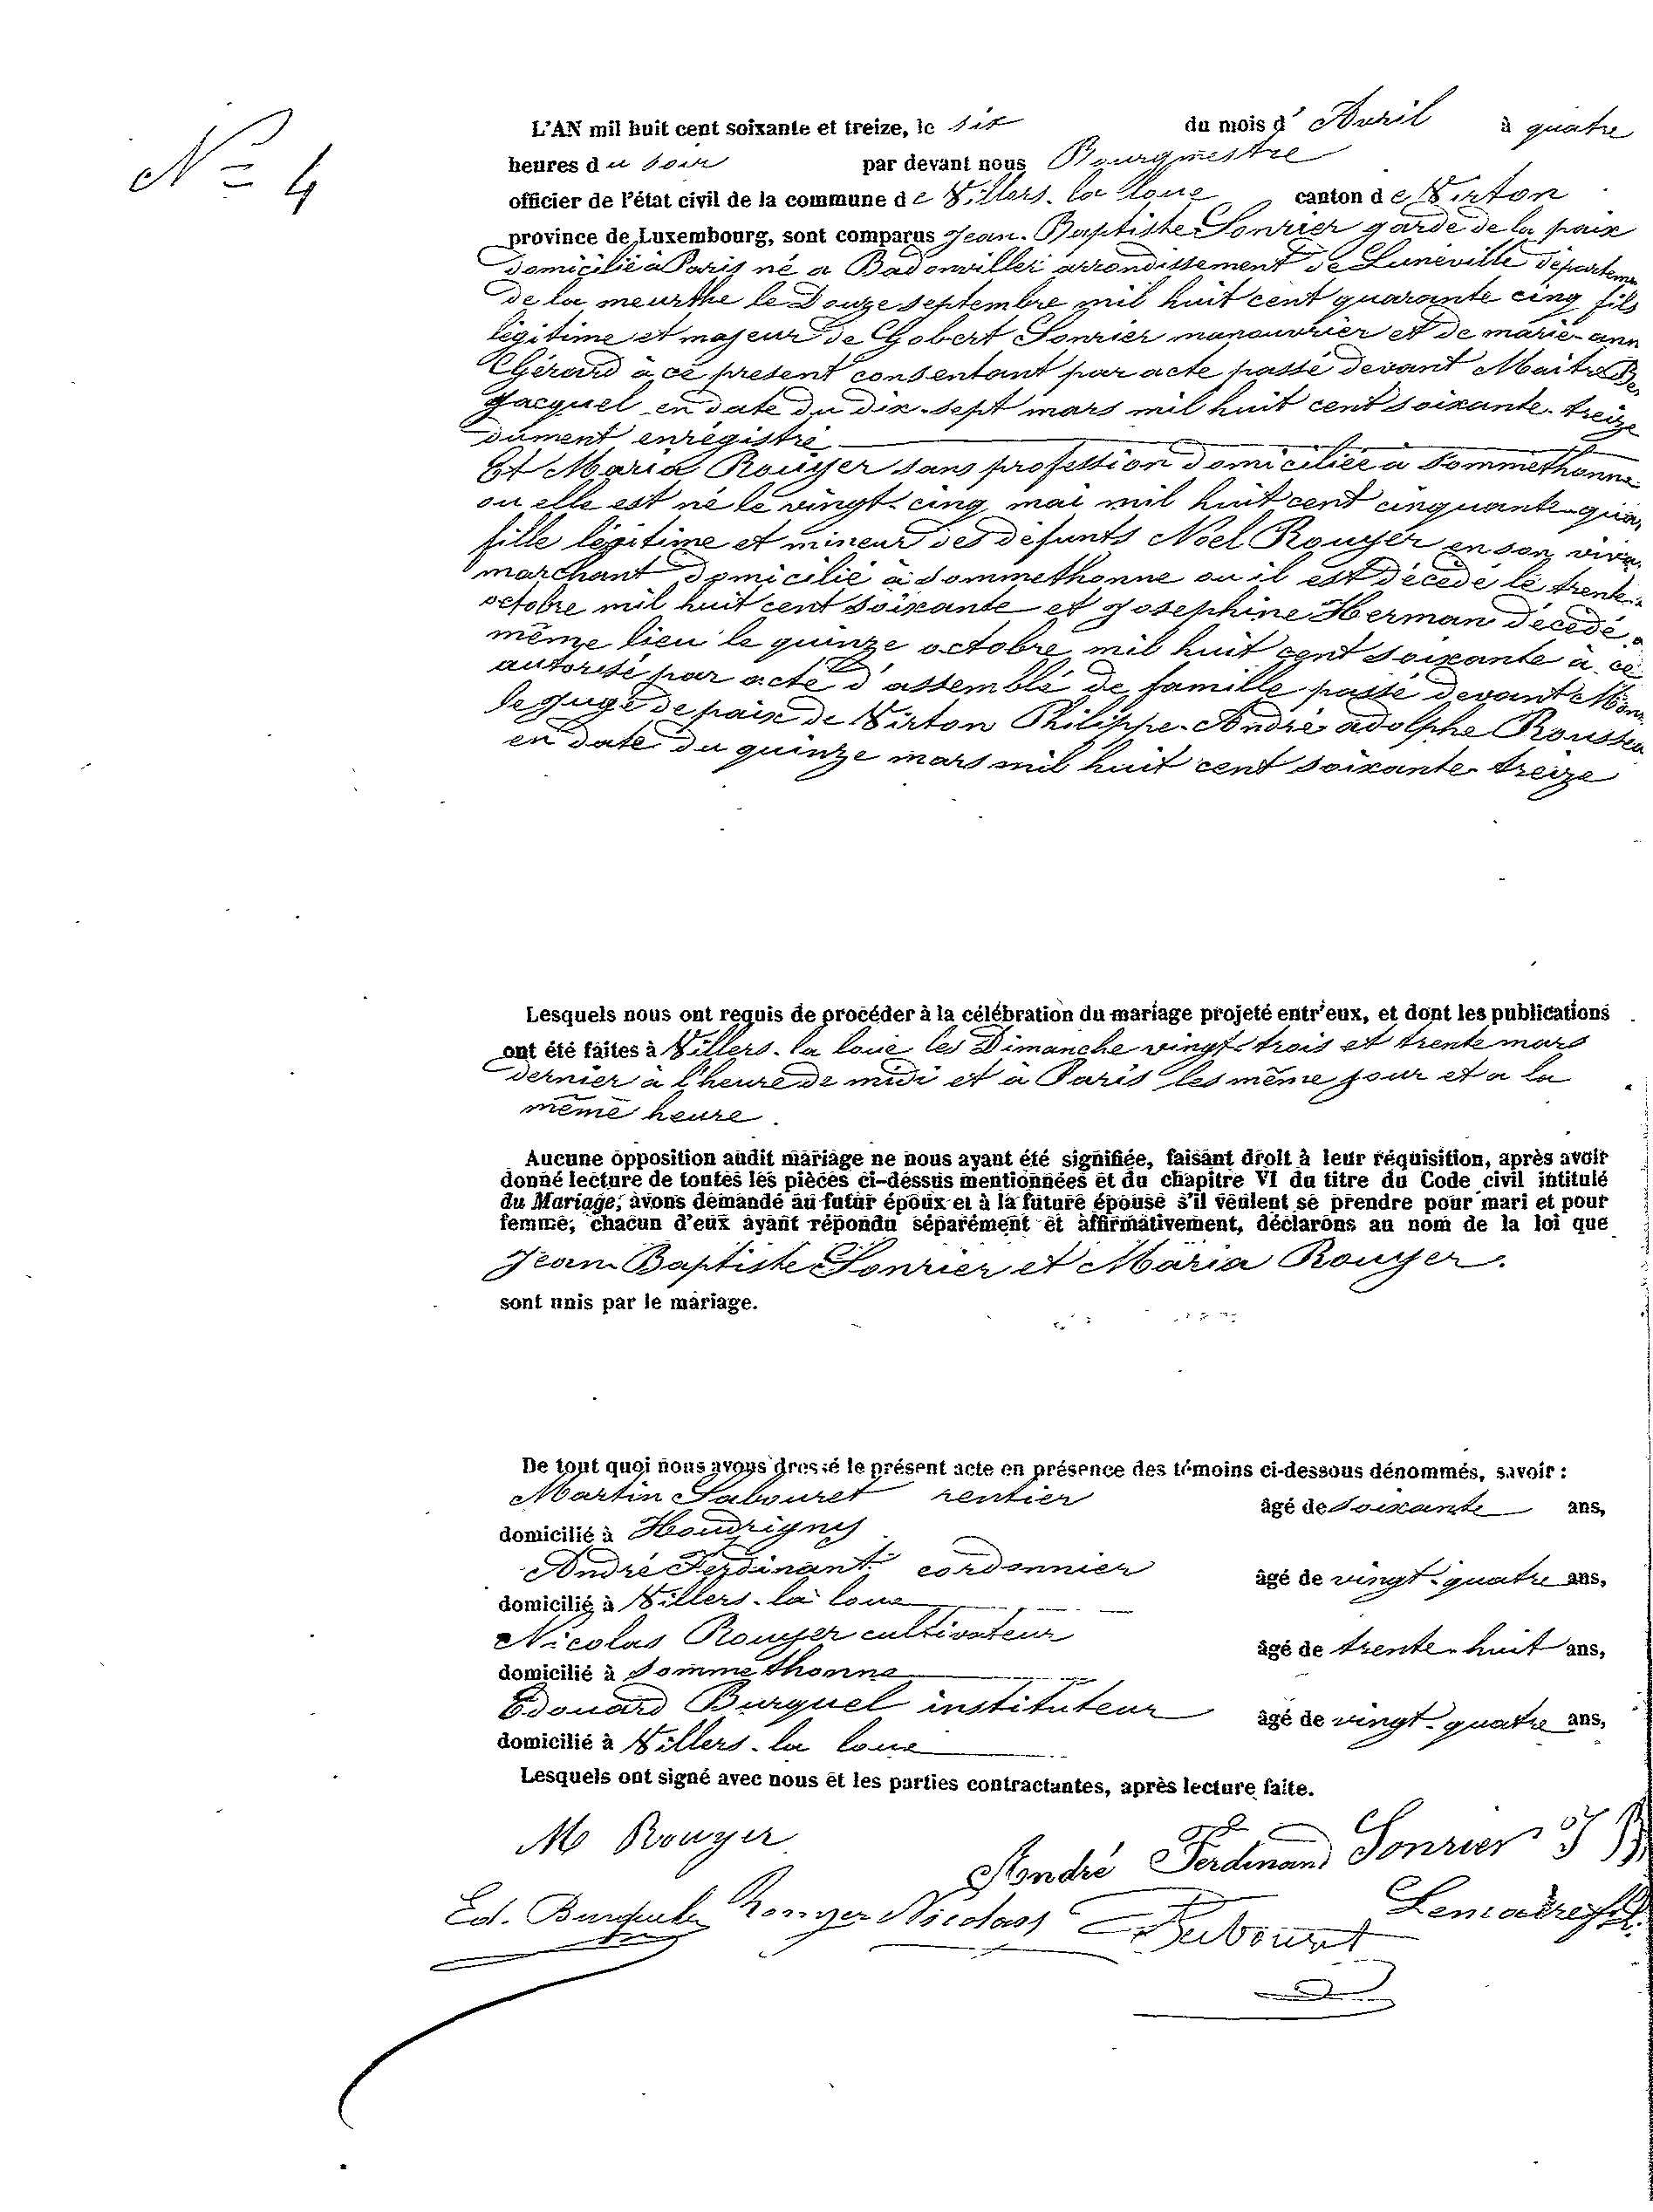 N= 4
L'AN mil huit cent soixante et treize, le six du mois d' Avril à quatre
heures du soir par devant nous Bourgmestre
officier de l'état civil de la commune de Villers-la loue canton de Virton
province de Luxembourg, sont comparus Jean-Baptiste Sonrier garde de la paix
domicilié à Paris né a Badonviller arrondissement de Lunéville départem
de la meurthe le Douze septembre mil huit cent quarante cinq fils
légitime et majeur de Gobert Sonrier manouvrier et de marie-ann
Gérard à ce présent consentant par acte passé devant Maitre
Jacquel en date du dix-sept mars mil huit cent soixante-treize
dument enrégistré
Et Maria Rouyer sans profession domiciliée à Sommethonne
ou elle est né le vingt-cinq mai mil huit cent cinquante-qua
fille légitime et mineur des défunts Noel Rouyer en son viva
marchant domicilié à Sommethonne ou il est décédé le trente
octobre mil huit cent soixante et Josephine Herman décédé a
même lieu le quinze octobre mil huit cent soixante à ce
autorisé par acte d'assemblé de famille passé devant Mons
le juge de paix de Virton Philippe-André adolphe Roussea
en date du quinze mars mil huit cent soixante-treize
Lesquels nous ont requis de procéder à la célébration du mariage projeté entr'eux, et dont les publications
ont été faites à Villers-la loue les Dimanche vingt-trois et trente mars
dernier à l'heure de midi et à Paris les même jour et a la
même heure.
Aucune opposition audit mariage ne nous ayant été signifiée, faisant droit à leur réquisition, après avoir
donné lecture de toutes les pièces ci-dessus mentionnées et du chapitre VI du titre du Code civil intitulé
du Mariage, avons demandé au futur époux et à la future épouse s'il veulent se prendre pour mari et pour
femme; chacun d'eux ayant répondu séparément et affirmativement, déclarons au nom de la loi que
Jean Baptiste Sonrier et Maria Rouyer.
sont unis par le mariage.
De tout quoi nous avons dressé le présent acte en présence des témoins ci-dessous dénommés, savoir :
Martin Sabouret rentier âgé de soixante ans,
domicilié à Houdrigny
André Ferdinant cordonnier âgé de vingt-quatre ans,
domicilié à Villers-la loue
Nicolas Rouyer cultivateur âgé de trente-huit ans,
domicilié à Sommethonne
Edouard Burquel instituteur âgé de vingt-quatre ans,
domicilié à Villers-la loue
Lesquels ont signé avec nous et les parties contractantes, après lecture faite.
M Rouyer André Ferdinand Sonrier J B
Ed. Burquel Rouyer Nicolas Sabouret Lemaire